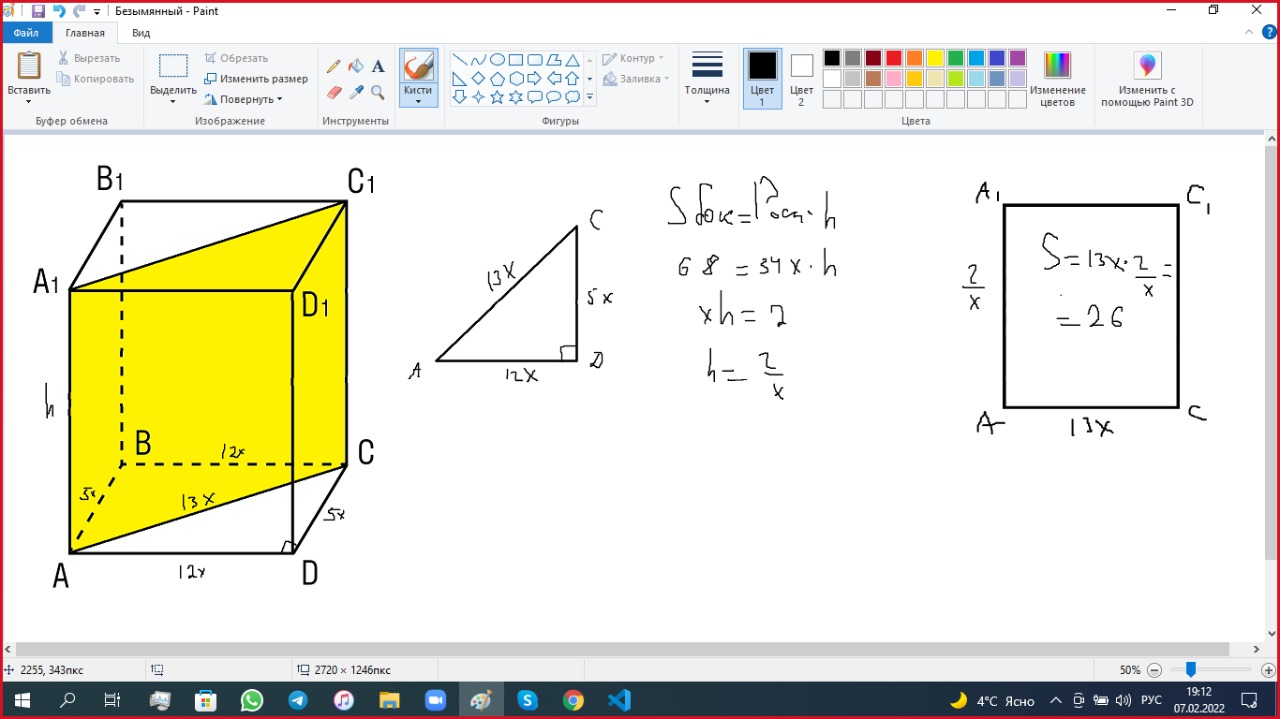 Безымянный - Paint
Файл
Главная
Вид
Вставить
Вырезать
Копировать
Буфер обмена
Выделить
Обрезать
Изменить размер
Повернуть
Изображение
A
Инструменты
Кисти
Контур
Заливка
Фигуры
Толщина
Цвет 1
Цвет 2
Изменение цветов
Цвета
Изменить с помощью Paint 3D
B1
C1
A1
D1
h
B
12x
C
5x
13x
5x
A
12x
D
C
13x
5x
A
12x
D
S бок = Pосн · h
68 = 34x · h
xh = 2
h = 2/x
A1
C1
2/x
S = 13x · 2/x =
= 26
A
13x
C
2255, 343пкс
2720 × 1246пкс
50%
4°C Ясно
РУС
19:12
07.02.2022